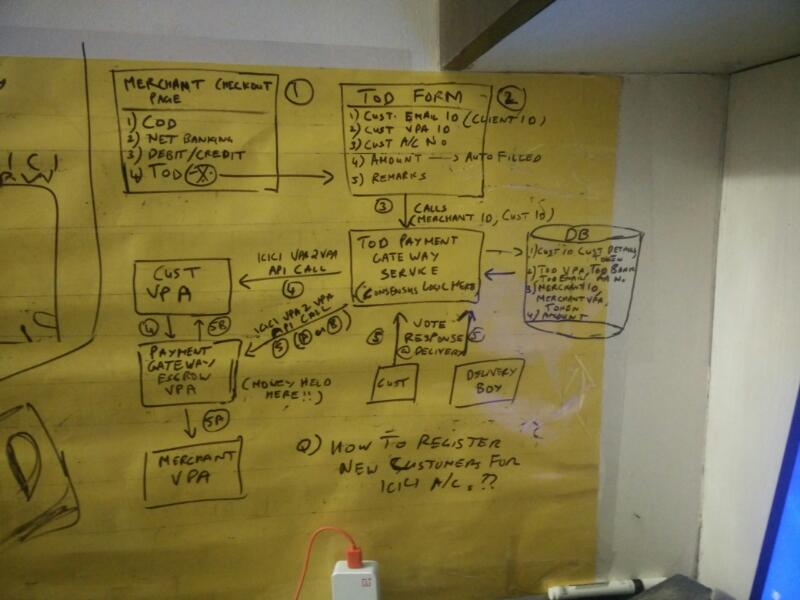 MERCHANT CHECKOUT
PAGE
1) COD
2) NET BANKING
3) DEBIT/CREDIT
4) TOD
1
TOD FORM
1) CUST. EMAIL ID (CLIENT ID)
2) CUST VPA ID
3) CUST A/C NO
4) AMOUNT → AUTO FILLED
5) REMARKS
2
3
CALLS
(MERCHANT ID, CUST ID)
TOD PAYMENT
GATEWAY
SERVICE
(CONSENSUS LOGIC HERE)
DB
1) CUST ID CUST DETAILS,
TOKEN
2) TOD VPA, TOD BANK
3) MERCHANT ID,
MERCHANT VPA,
TOKEN
4) AMOUNT
ICICI VPA2VPA
API CALL
4
CUST
VPA
ICICI VPA 2 VPA
API CALL
5
4
5B
PAYMENT
GATEWAY
ESCROW
VPA
(MONEY HELD
HERE!!)
5
VOTE
RESPONSE
@ DELIVERY
5
CUST
DELIVERY
BOY
5A
MERCHANT
VPA
Q) HOW TO REGISTER
NEW CUSTUMERS FOR
ICICI A/C.??